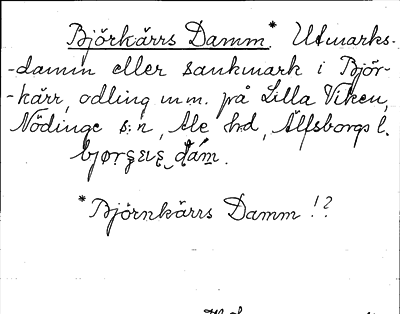 Björkärrs Damm.* Utmarks-
-damm eller sankmark i Björ-
-kärr, odling m.m. på Lilla Viken,
Nödinge s:n, Ale hd, Älfsborgs l.
*Björnkärrs Damm!?